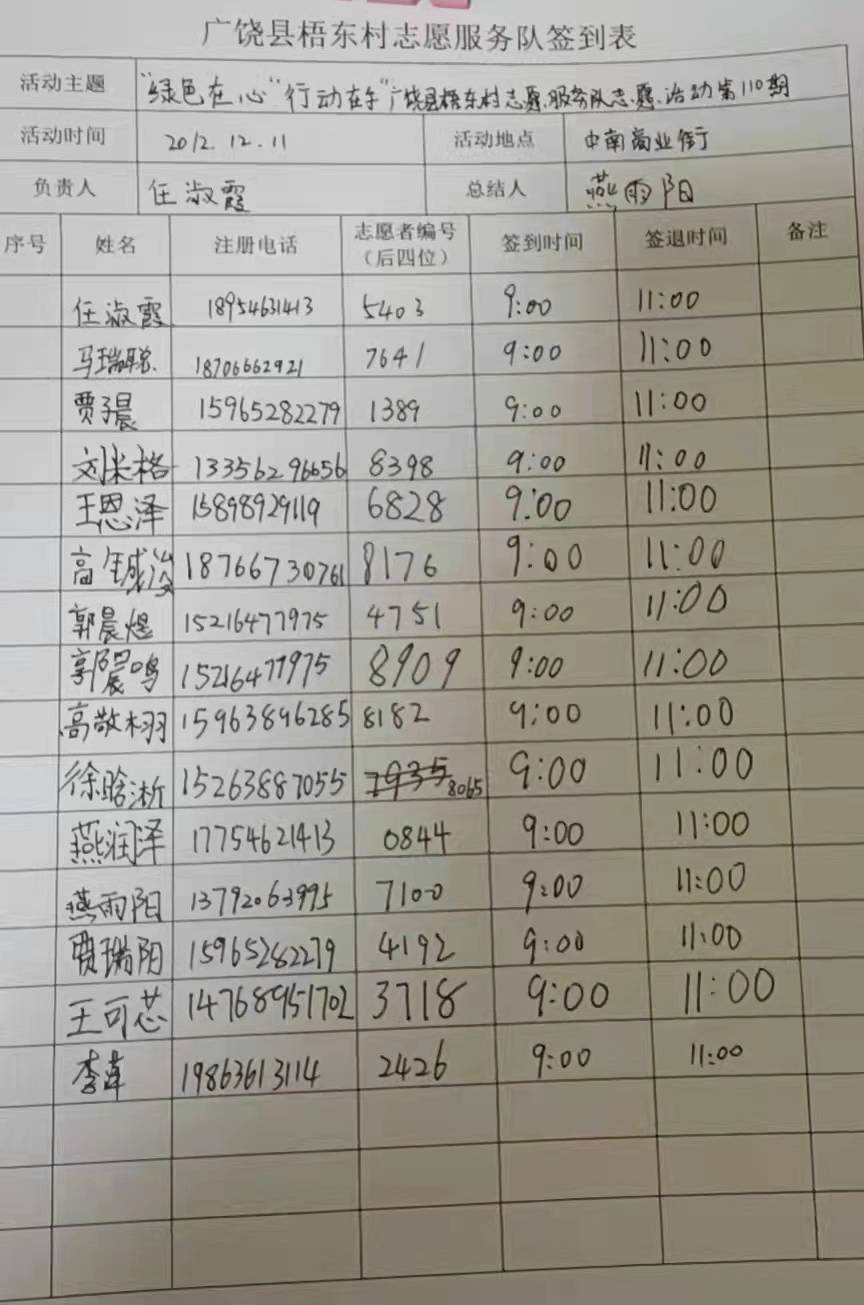 广饶县梧东村志愿服务队签到表
活动主题 "绿色在心"行动在手"广饶县梧东村志愿服务队志愿活动第110期
活动时间 2012.12.11 活动地点 中南商业街
负责人 任淑霞 总结人 燕雨阳
序号 姓名 注册电话 志愿者编号（后四位） 签到时间 签退时间 备注
任淑霞 18954631413 5403 9:00 11:00
马瑞聪 18706662921 7641 9:00 11:00
贾子晨 15965282279 1389 9:00 11:00
刘米格 13356296656 8398 9:00 11:00
王恩泽 15898929119 6828 9:00 11:00
高铖浚 18766730761 8176 9:00 11:00
郭晨煜 15216477975 4751 9:00 11:00
郭晨鸣 15216477975 8909 9:00 11:00
高敬栩 15963896285 8182 9:00 11:00
徐晗淅 15263887055 7935 8065 9:00 11:00
燕润泽 17754621413 0844 9:00 11:00
燕雨阳 13792063995 7100 9:00 11:00
贾瑞阳 15965282279 4192 9:00 11:00
王可芯 14768951702 3718 9:00 11:00
李莲 19863613114 2426 9:00 11:00